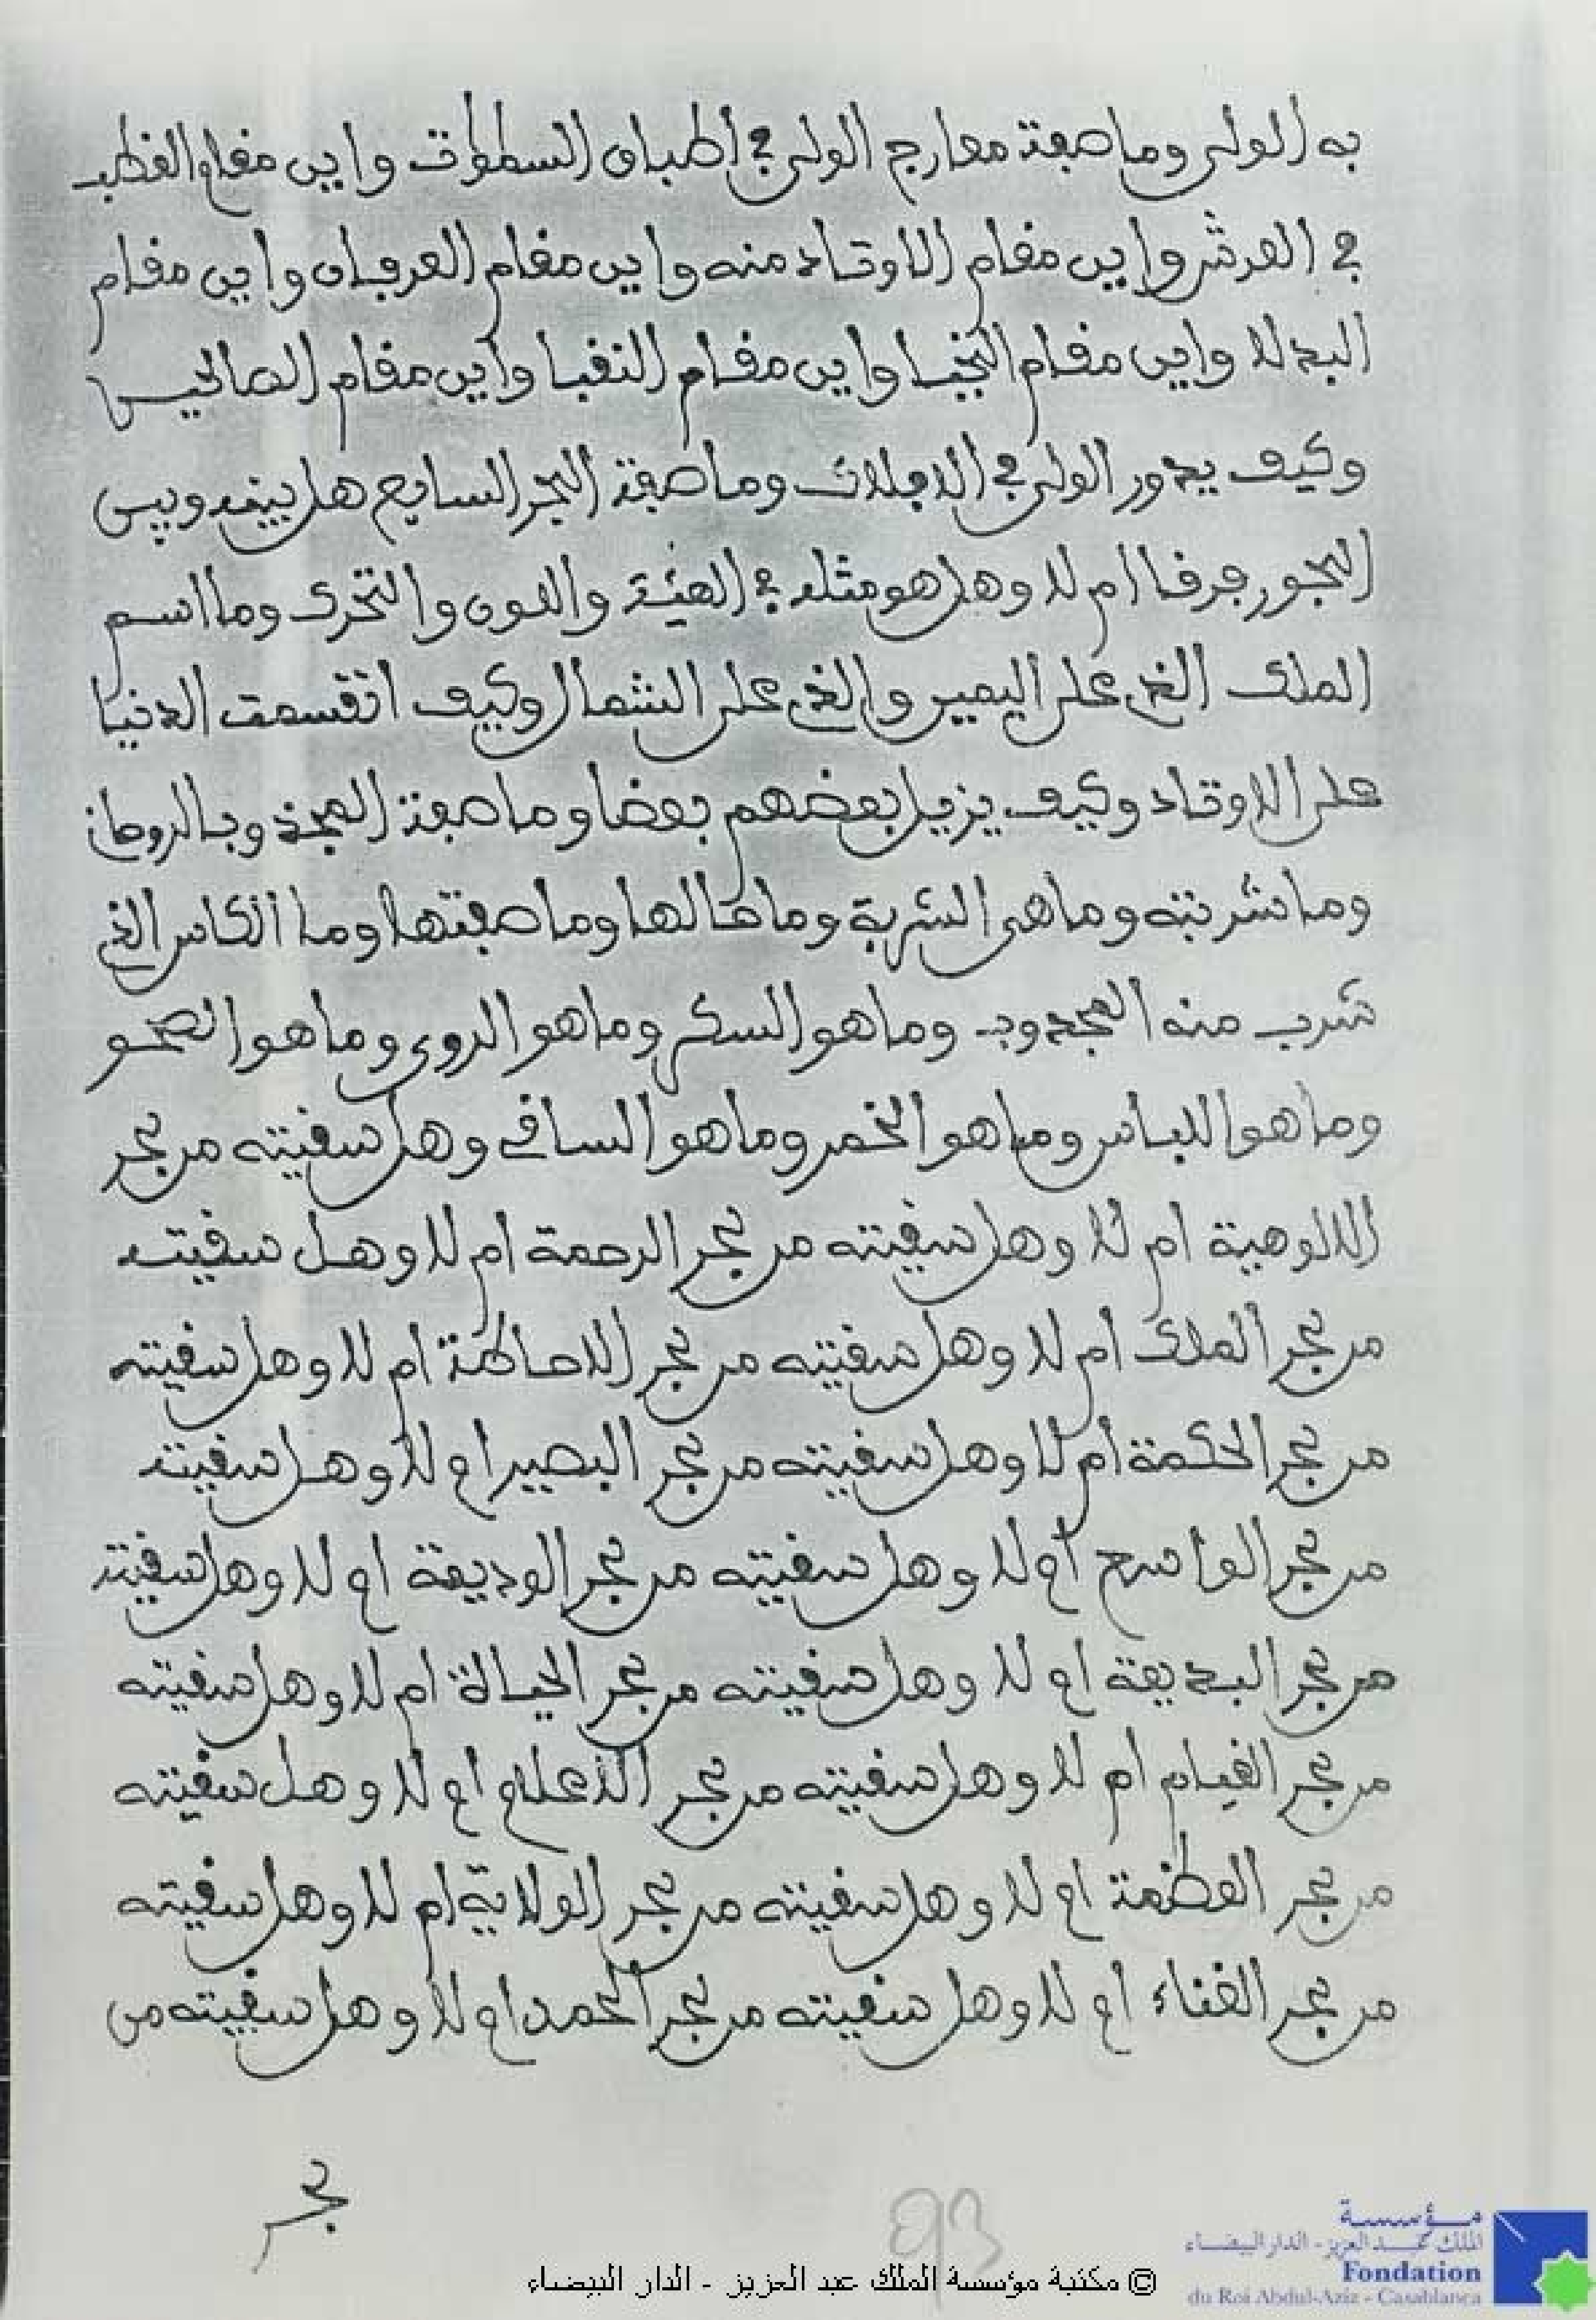 به الولى وما صفة معارج الولى في اطباق السموات واين مقام القطب
في العرش واين مقام الاوتاد منه واين مقام العرفان واين مقام
البدلا واين مقام النجبا واين مقام النقبا واين مقام الصالحين
وكيف يدور الولى في الافلاك وما صفة البحر السابع هل بينه وبين
البحور فرقا ام لا وهل هو مثله في الهيئة واللون والتحرك وما اسم
الملك الذي على اليمين والذي على الشمال وكيف اتقسمت الدنيا
على الاوتاد وكيف يزيل بعضهم بعضا وما صفة المجذوب الروحاني
وما شربته وما هي الشربة وما حالها وما صفتها وما الكاس الذي
شرب منه المجدوب وما هو السكر وما هو الروى وما هو الصحو
وما هو اللباس وما هو الخمر وما هو الساقي وهل سقيته من بحر
الالوهية ام لا وهل سقيته من بحر الرحمة ام لا وهل سقيته
من بحر الملك ام لا وهل سقيته من بحر الاحاطة ام لا وهل سقيته
من بحر الحكمة ام لا وهل سقيته من بحر البصير ام لا وهل سقيته
من بحر الواسع ام لا وهل سقيته من بحر الوديعة ام لا وهل سقيته
من بحر البديعة ام لا وهل سقيته من بحر الحياة ام لا وهل سقيته
من بحر القيام ام لا وهل سقيته من بحر الاعلام ام لا وهل سقيته
من بحر العظمة ام لا وهل سقيته من بحر الولاية ام لا وهل سقيته
من بحر الفناء ام لا وهل سقيته من بحر الحمد ام لا وهل سقيته من
بحر
93
مؤسسة
الملك عبد العزيز - الدار البيضاء
Fondation
du Roi Abdul-Aziz - Casablanca
© مكتبة مؤسسة الملك عبد العزيز - الدار البيضاء